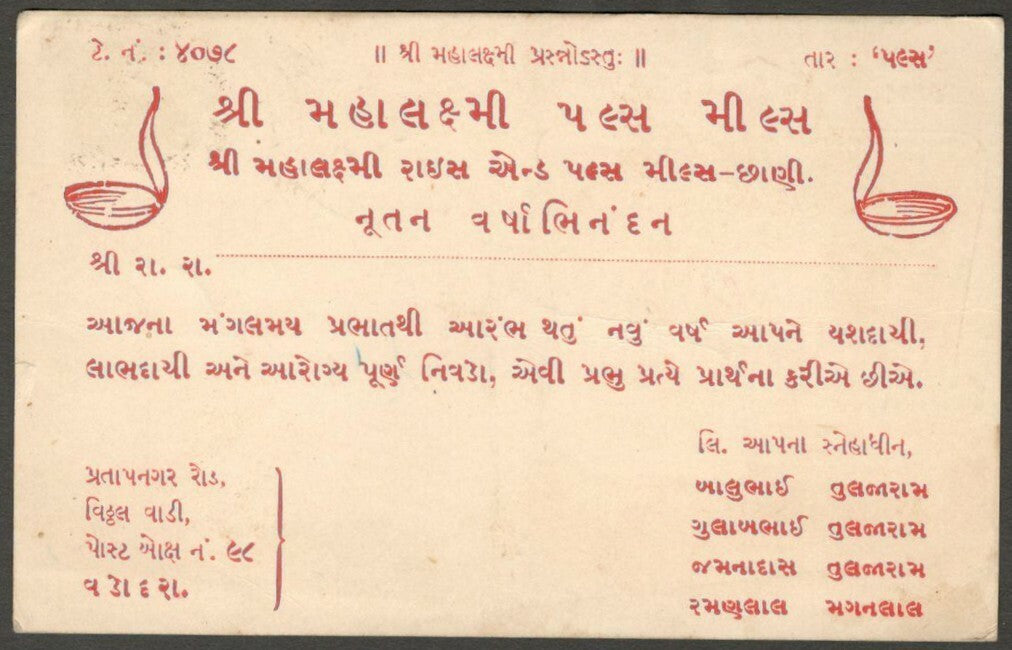 ટે. નં. : ૪૦૭૮ ॥ શ્રી મહાલક્ષ્મી પ્રસન્નોઽસ્તુઃ ॥ તાર : ‘પલ્સ’
શ્રી મહાલક્ષ્મી પલ્સ મીલ્સ
શ્રી મહાલક્ષ્મી રાઇસ એન્ડ પલ્સ મીલ્સ–છાણી.
નૂતન વર્ષાભિનંદન
શ્રી રા. રા.
આજના મંગલમય પ્રભાતથી આરંભ થતું નવું વર્ષ આપને યશદાયી,
લાભદાયી અને આરોગ્ય પૂર્ણ નિવડો, એવી પ્રભુ પ્રત્યે પ્રાર્થના કરીએ છીએ.
લિ. આપના સ્નેહાધીન,
બાલુભાઈ તુલજારામ
ગુલાબભાઈ તુલજારામ
જમનાદાસ તુલજારામ
રમણલાલ મગનલાલ
પ્રતાપનગર રોડ,
વિઠ્ઠલ વાડી,
પોસ્ટ બોક્ષ નં. ૯૮
વડોદરા.